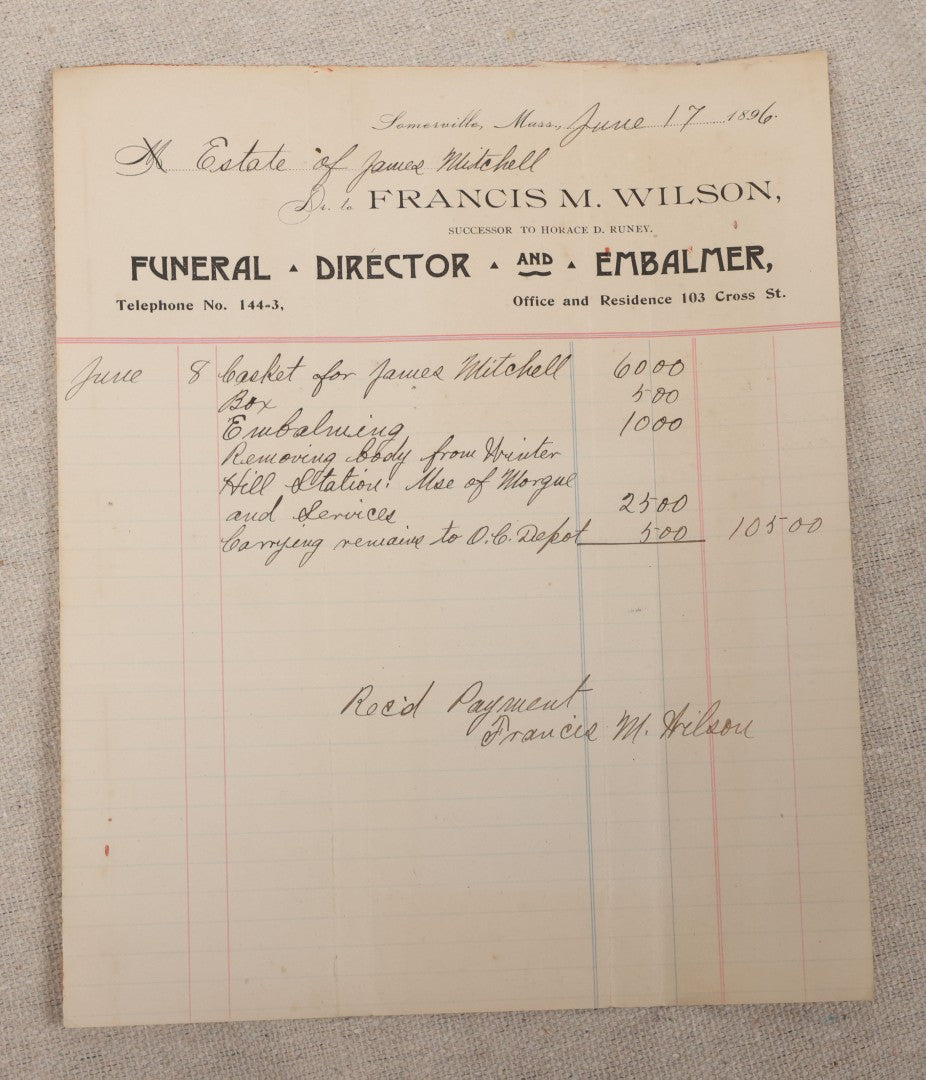 Somerville, Mass., June 17 1896.
M Estate of James Mitchell
Dr. to FRANCIS M. WILSON,
SUCCESSOR TO HORACE D. RUNEY.
FUNERAL ▲ DIRECTOR ▲ AND ▲ EMBALMER,
Telephone No. 144-3, Office and Residence 103 Cross St.
June 8 Casket for James Mitchell 60 00
Box 5 00
Embalming 10 00
Removing body from Winter
Hill Station. Use of Morgue
and Services 25 00
Carrying remains to O.C. Depot 5 00 105 00
Rec'd Payment
Francis M. Wilson